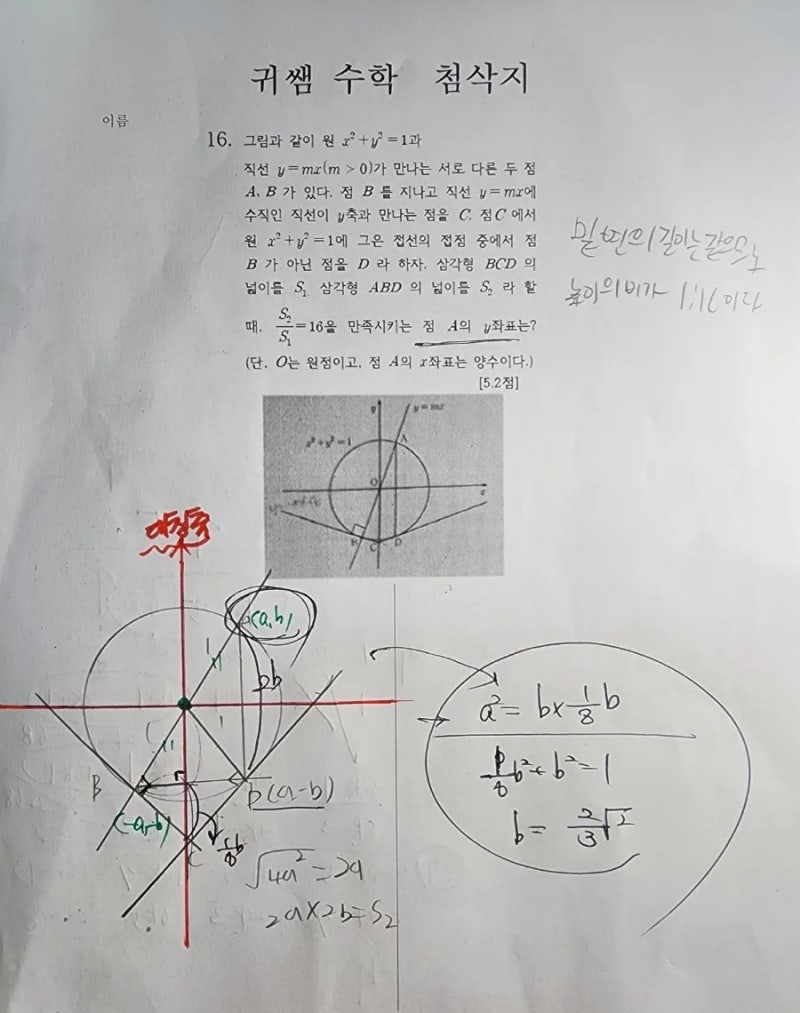 귀쌤 수학 첨삭지
이름
16. 그림과 같이 원 x²+y²=1과
직선 y=mx(m>0)가 만나는 서로 다른 두 점
A, B 가 있다. 점 B 를 지나고 직선 y=mx에
수직인 직선이 y축과 만나는 점을 C, 점C 에서
원 x²+y²=1에 그은 접선의 접점 중에서 점
B 가 아닌 점을 D 라 하자. 삼각형 BCD 의
넓이를 S₁, 삼각형 ABD 의 넓이를 S₂ 라 할
때, S₂/S₁=16을 만족시키는 점 A의 y좌표는?
(단, O는 원점이고, 점 A의 x좌표는 양수이다.)
[5.2점]
밑변의 길이는 같으므로
높이의 비가 1:16이다
y
y=mx
x²+y²=1
A
O
x
B
C
D
대칭축
(a,b)
1
2b
1
B
D(a-b)
(-a,-b)
C
1/8b
√4a²=2a
2a×2b=S₂
a²=b×1/8b
1/8b²+b²=1
b=2/3√2